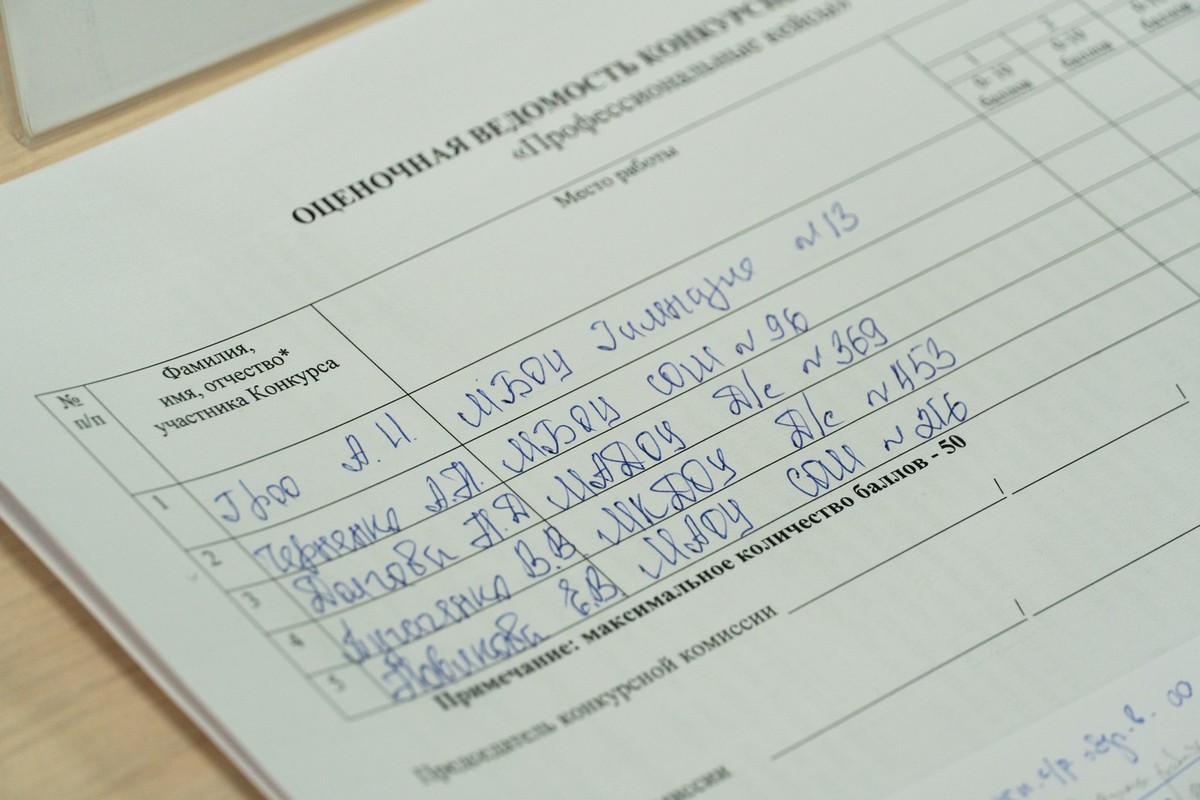 ОЦЕНОЧНАЯ ВЕДОМОСТЬ КОНКУРСН
«Профессиональные кейсы»
№ п/п
Фамилия, имя, отчество* участника Конкурса
Место работы
1 2
0-10 баллов 0-10 баллов 0-10 баллов
1 А.И. МБОУ Гимназия №13
2 Черненко А.П. МБОУ СОШ №96
3 Долгова Н.Д МАДОУ Д/с №369
4 В.В. МКДОУ Д/с №453
5 Новикова Е.В МАОУ СОШ №216
Примечание: максимальное количество баллов - 50
Председатель конкурсной комиссии
миссии